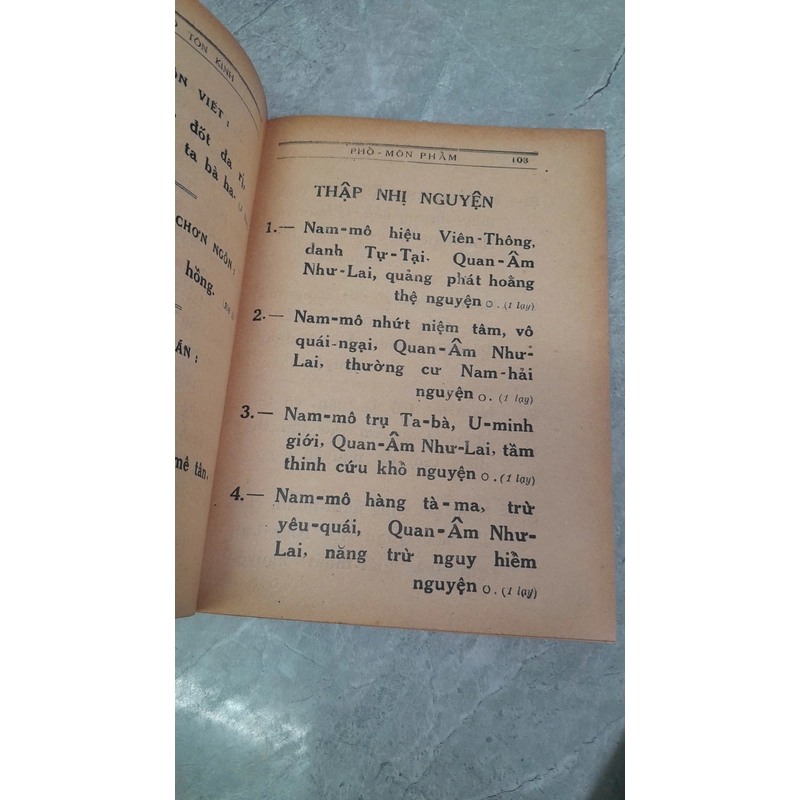 TÔN KINH
VIẾT :
đốt đa rị,
ta bà ha.
CHƠN NGÔN :
hồng.
ÁN :
mê tân,
PHỔ-MÔN PHẨM 103
THẬP NHỊ NGUYỆN
1.— Nam-mô hiệu Viên-Thông,
danh Tự-Tại. Quan-Âm
Như-Lai, quảng phát hoằng
thệ nguyện o. (1 lạy)
2.— Nam-mô nhứt niệm tâm, vô
quái-ngại, Quan-Âm Như-
Lai, thường cư Nam-hải
nguyện o. (1 lạy)
3.— Nam-mô trụ Ta-bà, U-minh
giới, Quan-Âm Như-Lai, tầm
thinh cứu khổ nguyện o. (1 lạy)
4.— Nam-mô hàng tà-ma, trừ
yêu-quái, Quan-Âm Như-
Lai, năng trừ nguy hiểm
nguyện o. (1 lạy)